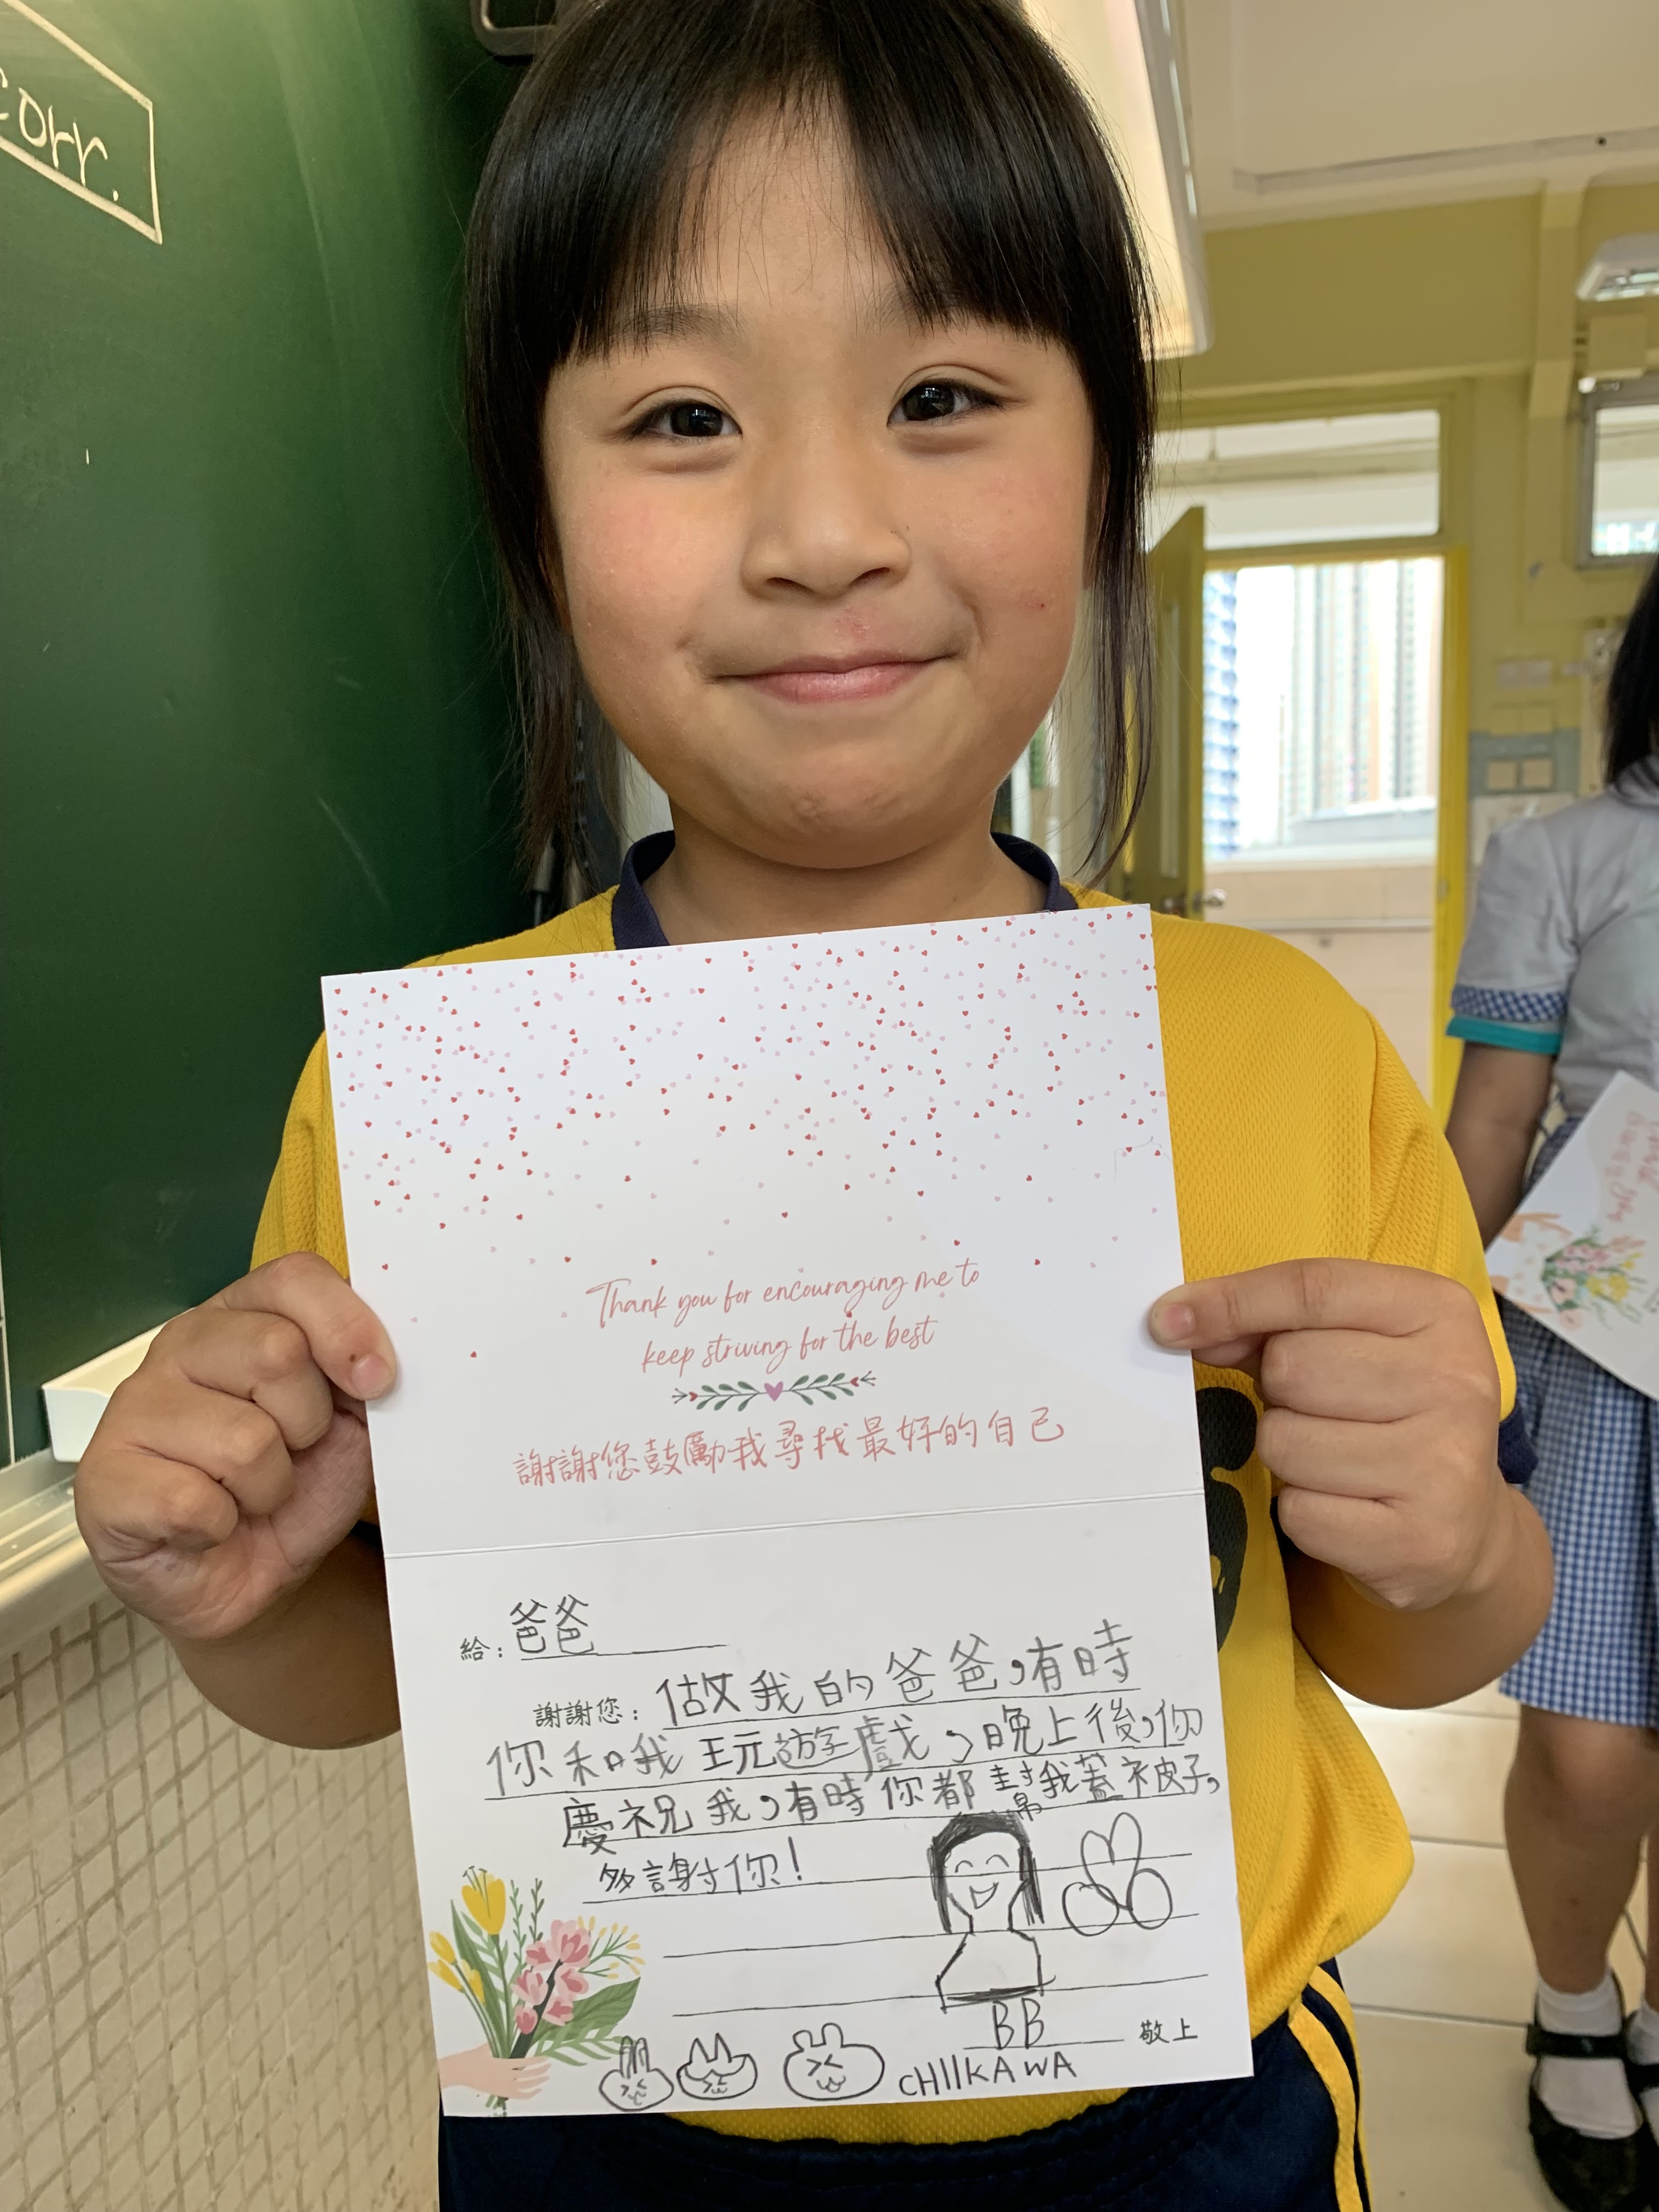 corr.
Thank you for encouraging me to
keep striving for the best
謝謝您鼓勵我尋找最好的自己
給：爸爸
謝謝您：做我的爸爸，有時
你和我玩遊戲，晚上後，你
慶祝我，有時你都幫我蓋被子，
多謝你！
BB 敬上
CHIIKAWA